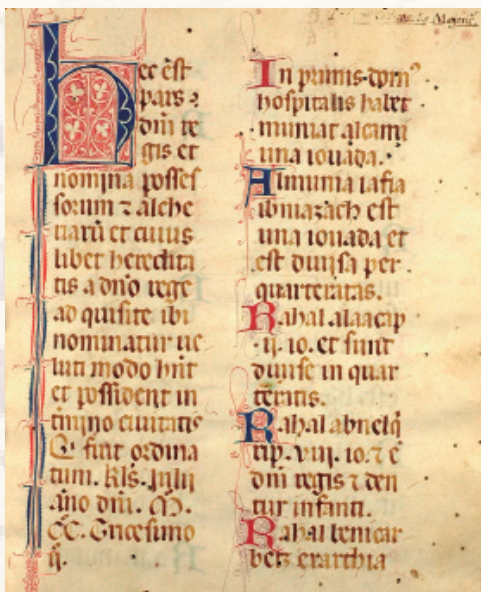 Hec est
pars ⁊
dñi re
gis et
nomina posses
sorum ⁊ alche
riarũ et cuius
libet heredita
tis a dño rege
ad quisite ibi
nominatur ue
luti modo hñt
et possident in
t̃mino ciuitatis
Q. fuit ordina
tum. Kl̃s. Julij
ãno dñi. M.
CC. Tricesimo
ij.
In primis dom⁹
hospitalis habet
muniat alcami
una iouada.
Almunia iafia
ibniazach est
una iouada et
est diuisa per
quarteratas.
Rahal alaacap
.ij. io. et sunt
diuise in quar
teratis.
Rahal abnelq̃
tip. viij. io. ⁊ ẽ
dñi regis ⁊ den
tur infanti.
Rahal benicar
betz exarchia